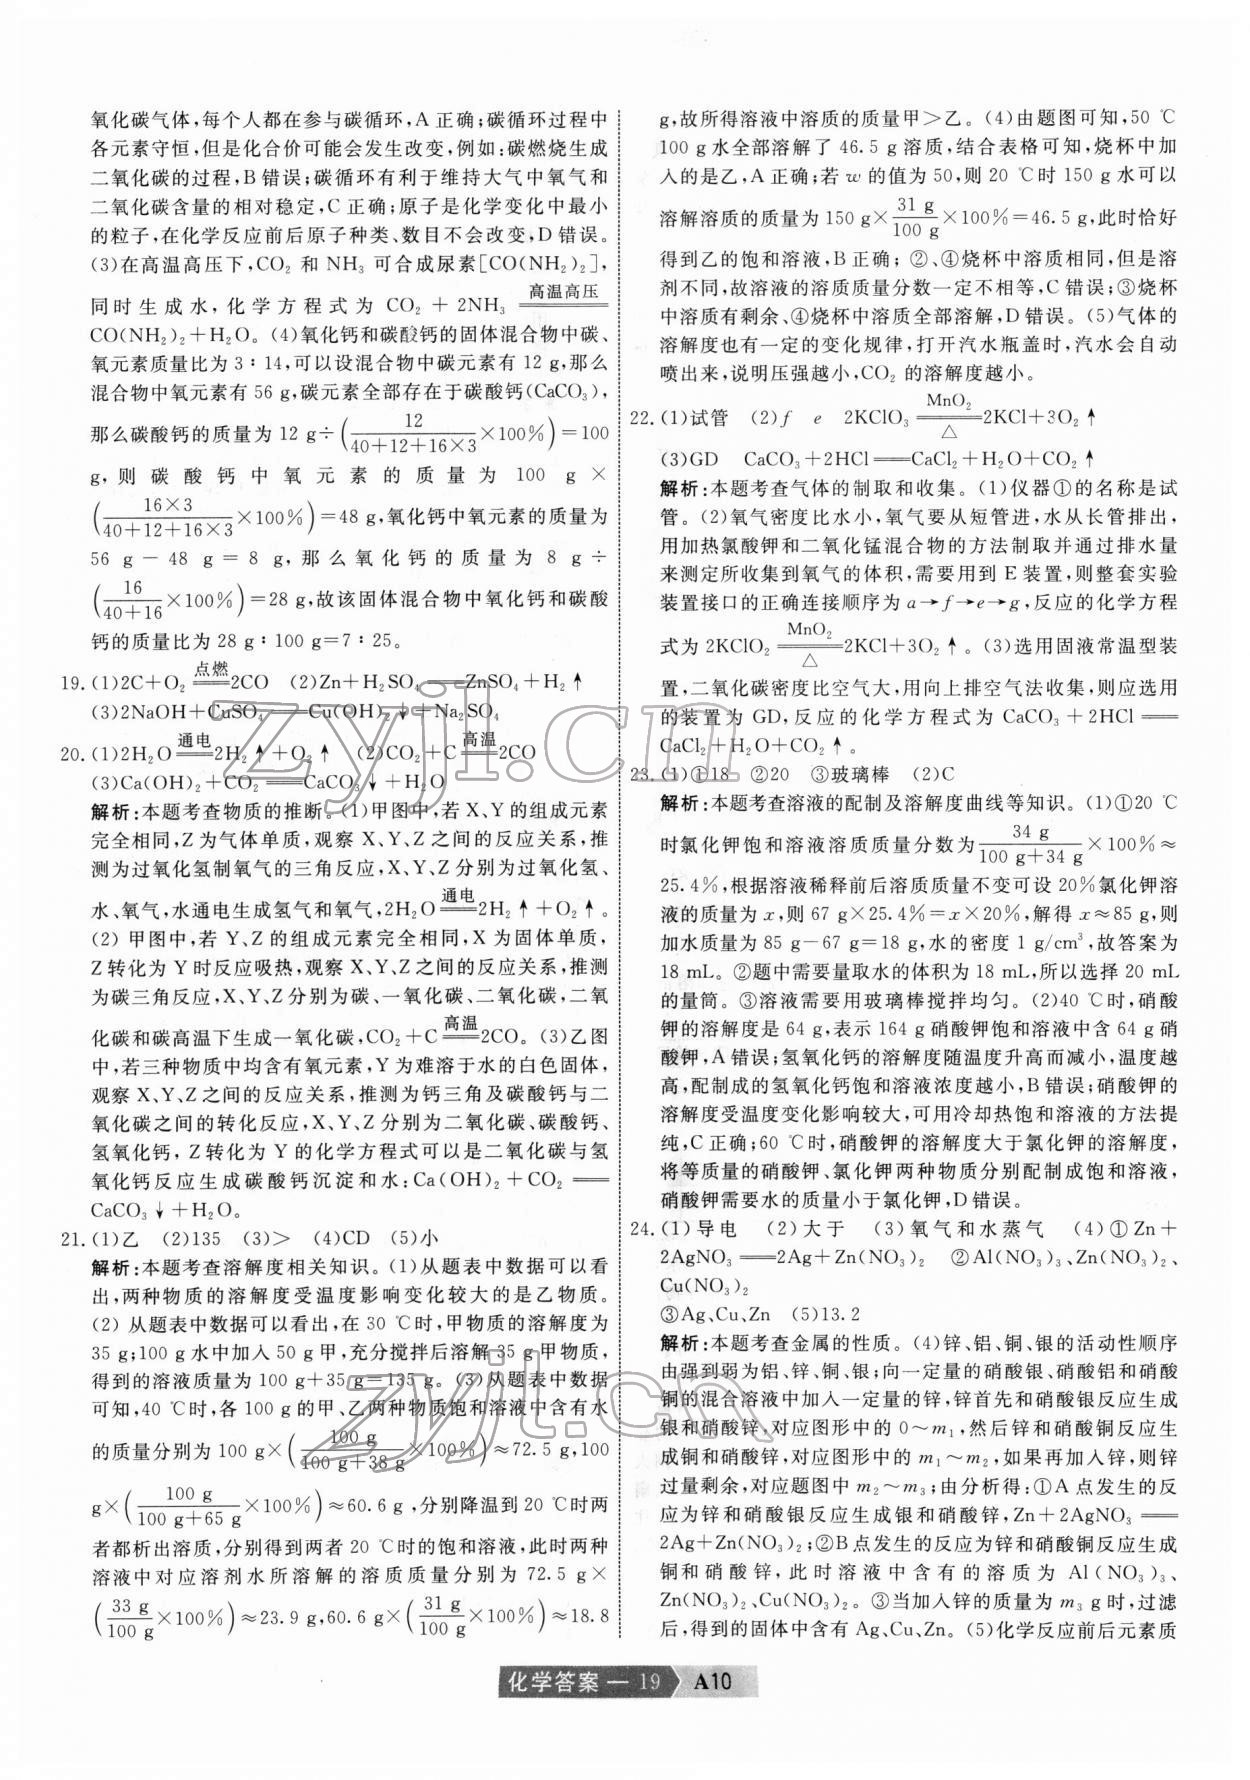 氧化碳气体,每个人都在参与碳循环,A正确;碳循环过程中
各元素守恒,但是化合价可能会发生改变,例如:碳燃烧生成
二氧化碳的过程,B错误;碳循环有利于维持大气中氧气和
二氧化碳含量的相对稳定,C正确;原子是化学变化中最小
的粒子,在化学反应前后原子种类、数目不会改变,D错误。
(3)在高温高压下,CO₂ 和 NH₃ 可合成尿素[CO(NH₂)₂],
同时生成水,化学方程式为 CO₂ + 2NH₃ ═高温高压═
CO(NH₂)₂+H₂O。(4)氧化钙和碳酸钙的固体混合物中碳、
氧元素质量比为 3∶14,可以设混合物中碳元素有 12 g,那么
混合物中氧元素有 56 g,碳元素全部存在于碳酸钙(CaCO₃),
那么碳酸钙的质量为 12 g÷(12/(40+12+16×3)×100%)=100
g,则碳酸钙中氧元素的质量为 100 g×
(16×3/(40+12+16×3)×100%)=48 g,氧化钙中氧元素的质量为
56 g-48 g=8 g,那么氧化钙的质量为 8 g÷
(16/(40+16)×100%)=28 g,故该固体混合物中氧化钙和碳酸
钙的质量比为 28 g∶100 g=7∶25。
19. (1)2C+O₂ ═点燃═ 2CO (2)Zn+H₂SO₄ ══ ZnSO₄+H₂↑
(3)2NaOH+CuSO₄ ══ Cu(OH)₂↓+Na₂SO₄
20. (1)2H₂O ═通电═ 2H₂↑+O₂↑ (2)CO₂+C ═高温═ 2CO
(3)Ca(OH)₂+CO₂ ══ CaCO₃↓+H₂O
解析:本题考查物质的推断。(1)甲图中,若 X、Y 的组成元素
完全相同,Z 为气体单质,观察 X、Y、Z 之间的反应关系,推
测为过氧化氢制氧气的三角反应,X、Y、Z 分别为过氧化氢、
水、氧气,水通电生成氢气和氧气,2H₂O ═通电═ 2H₂↑+O₂↑。
(2) 甲图中,若 Y、Z 的组成元素完全相同,X 为固体单质,
Z 转化为 Y 时反应吸热,观察 X、Y、Z 之间的反应关系,推测
为碳三角反应,X、Y、Z 分别为碳、一氧化碳、二氧化碳,二氧
化碳和碳高温下生成一氧化碳,CO₂+C ═高温═ 2CO。(3)乙图
中,若三种物质中均含有氧元素,Y 为难溶于水的白色固体,
观察 X、Y、Z 之间的反应关系,推测为钙三角及碳酸钙与二
氧化碳之间的转化反应,X、Y、Z 分别为二氧化碳、碳酸钙、
氢氧化钙,Z 转化为 Y 的化学方程式可以是二氧化碳与氢
氧化钙反应生成碳酸钙沉淀和水:Ca(OH)₂ + CO₂ ══
CaCO₃↓+H₂O。
21. (1)乙 (2)135 (3)> (4)CD (5)小
解析:本题考查溶解度相关知识。(1)从题表中数据可以看
出,两种物质的溶解度受温度影响变化较大的是乙物质。
(2) 从题表中数据可以看出,在 30 ℃时,甲物质的溶解度为
35 g;100 g 水中加入 50 g 甲,充分搅拌后溶解 35 g 甲物质,
得到的溶液质量为 100 g+35 g=135 g。(3)从题表中数据
可知,40 ℃时,各 100 g 的甲、乙两种物质饱和溶液中含有水
的质量分别为 100 g×(100 g/(100 g+38 g)×100%)≈72.5 g,100
g×(100 g/(100 g+65 g)×100%)≈60.6 g,分别降温到 20 ℃时两
者都析出溶质,分别得到两者 20 ℃时的饱和溶液,此时两种
溶液中对应溶剂水所溶解的溶质质量分别为 72.5 g×
(33 g/100 g×100%)≈23.9 g,60.6 g×(31 g/100 g×100%)≈18.8
g,故所得溶液中溶质的质量甲>乙。(4)由题图可知,50 ℃
100 g 水全部溶解了 46.5 g 溶质,结合表格可知,烧杯中加
入的是乙,A 正确;若 w 的值为 50,则 20 ℃时 150 g 水可以
溶解溶质的质量为 150 g×31 g/100 g×100%=46.5 g,此时恰好
得到乙的饱和溶液,B 正确;②、④烧杯中溶质相同,但是溶
剂不同,故溶液的溶质质量分数一定不相等,C 错误;③烧杯
中溶质有剩余、④烧杯中溶质全部溶解,D 错误。(5)气体的
溶解度也有一定的变化规律,打开汽水瓶盖时,汽水会自动
喷出来,说明压强越小,CO₂ 的溶解度越小。
22. (1)试管 (2)f e 2KClO₃ ═MnO₂/△═ 2KCl+3O₂↑
(3)GD CaCO₃+2HCl ══ CaCl₂+H₂O+CO₂↑
解析:本题考查气体的制取和收集。(1)仪器①的名称是试
管。(2)氧气密度比水小,氧气要从短管进,水从长管排出,
用加热氯酸钾和二氧化锰混合物的方法制取并通过排水量
来测定所收集到氧气的体积,需要用到 E 装置,则整套实验
装置接口的正确连接顺序为 a→f→e→g,反应的化学方程
式为 2KClO₂ ═MnO₂/△═ 2KCl+3O₂↑。(3)选用固液常温型装
置,二氧化碳密度比空气大,用向上排空气法收集,则应选用
的装置为 GD,反应的化学方程式为 CaCO₃ + 2HCl ══
CaCl₂+H₂O+CO₂↑。
23. (1)①18 ②20 ③玻璃棒 (2)C
解析:本题考查溶液的配制及溶解度曲线等知识。(1)①20 ℃
时氯化钾饱和溶液溶质质量分数为 34 g/(100 g+34 g)×100%≈
25.4%,根据溶液稀释前后溶质质量不变可设 20%氯化钾溶
液的质量为 x,则 67 g×25.4%=x×20%,解得 x≈85 g,则
加水质量为 85 g-67 g=18 g,水的密度 1 g/cm³,故答案为
18 mL。②题中需要量取水的体积为 18 mL,所以选择 20 mL
的量筒。③溶液需要用玻璃棒搅拌均匀。(2)40 ℃时,硝酸
钾的溶解度是 64 g,表示 164 g 硝酸钾饱和溶液中含 64 g 硝
酸钾,A 错误;氢氧化钙的溶解度随温度升高而减小,温度越
高,配制成的氢氧化钙饱和溶液浓度越小,B 错误;硝酸钾的
溶解度受温度变化影响较大,可用冷却热饱和溶液的方法提
纯,C 正确;60 ℃时,硝酸钾的溶解度大于氯化钾的溶解度,
将等质量的硝酸钾、氯化钾两种物质分别配制成饱和溶液,
硝酸钾需要水的质量小于氯化钾,D 错误。
24. (1)导电 (2)大于 (3)氧气和水蒸气 (4)①Zn+
2AgNO₃ ══ 2Ag+Zn(NO₃)₂ ②Al(NO₃)₃、Zn(NO₃)₂、
Cu(NO₃)₂
③Ag、Cu、Zn (5)13.2
解析:本题考查金属的性质。(4)锌、铝、铜、银的活动性顺序
由强到弱为铝、锌、铜、银;向一定量的硝酸银、硝酸铝和硝酸
铜的混合溶液中加入一定量的锌,锌首先和硝酸银反应生成
银和硝酸锌,对应图形中的 0～m₁,然后锌和硝酸铜反应生
成铜和硝酸锌,对应图形中的 m₁～m₂,如果再加入锌,则锌
过量剩余,对应题图中 m₂～m₃;由分析得:①A 点发生的反
应为锌和硝酸银反应生成银和硝酸锌,Zn+2AgNO₃ ══
2Ag+Zn(NO₃)₂;②B 点发生的反应为锌和硝酸铜反应生成
铜和硝酸锌,此时溶液中含有的溶质为 Al(NO₃)₃、
Zn(NO₃)₂、Cu(NO₃)₂。③当加入锌的质量为 m₃ g 时,过滤
后,得到的固体中含有 Ag、Cu、Zn。(5)化学反应前后元素质
化学答案 — 19 A10
zyjl.cn
zyjl.cn